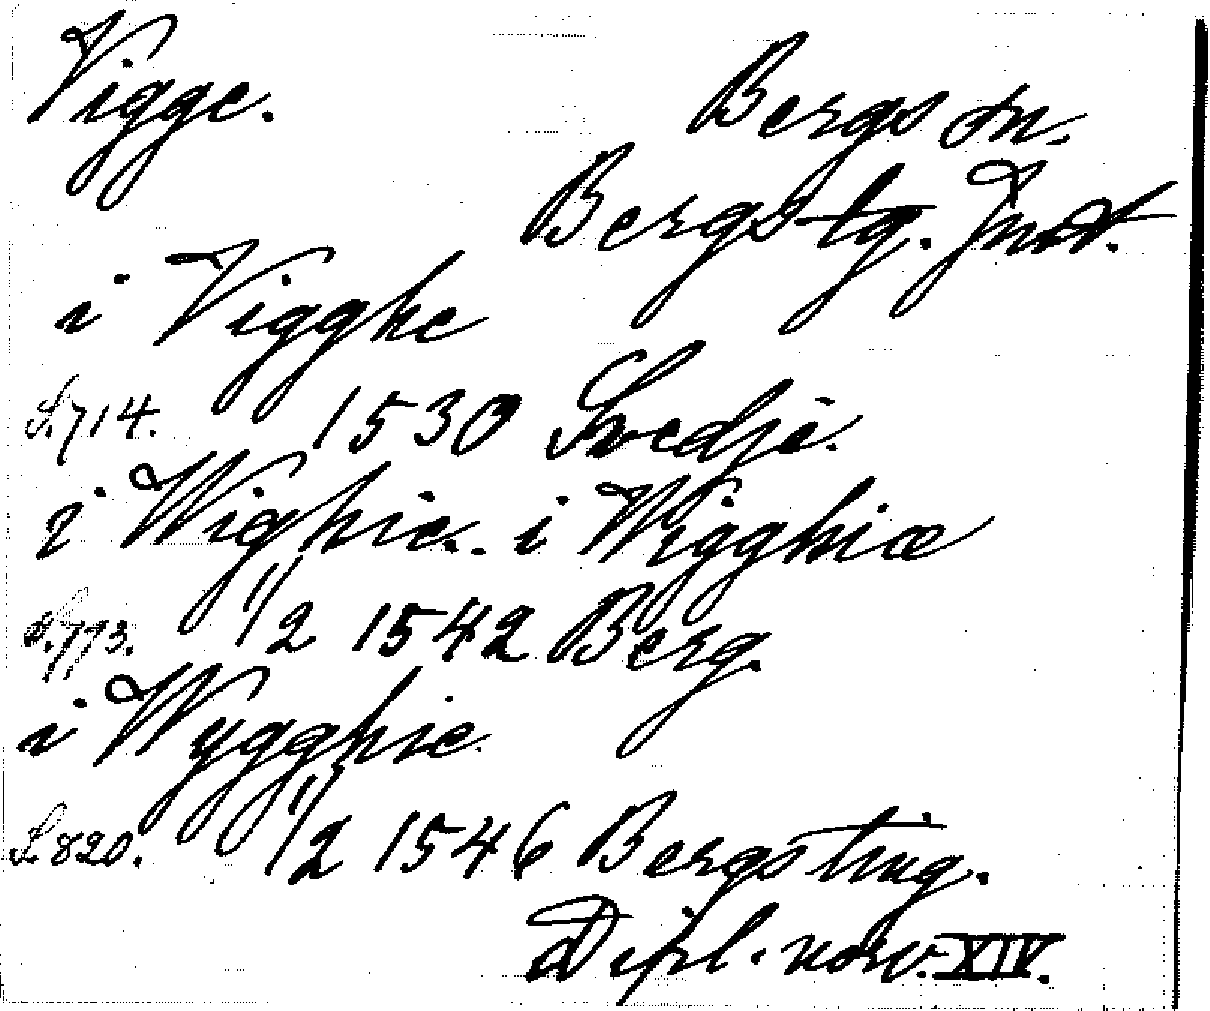 Vigge.
Bergs sn.
Bergs tg. Jmtl.
i Vigghe
S. 714. 1530 Svedje.
i Wighie. i Wigghiæ
S. 773. 11/2 1542 Berg.
i Wygghie
S. 820. 11/2 1546 Bergs ting.
Dipl. norv. XIV.